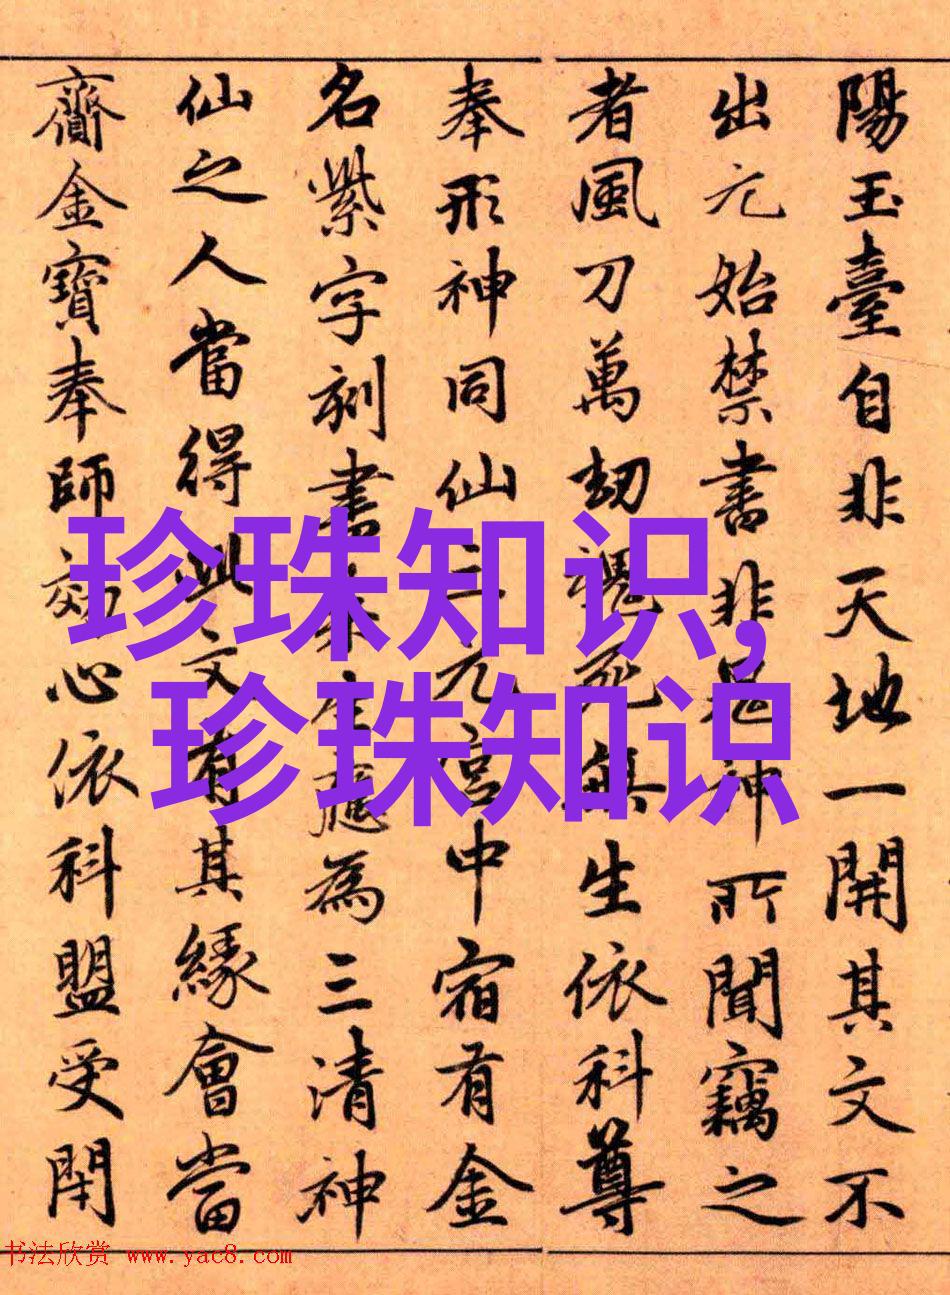 陽玉臺自非天地一開其文不
出元始禁書非鬼神所聞竊之
者風刀萬劫死無生依科尊
奉形神同仙三元宮中宿有金
名紫字刻書生應為三清神
仙之人當得此文有其緣會當
齎金寶奉師効心依科盟受閇
珍珠知识,
珍珠知识
书法欣赏 www.yac8.com